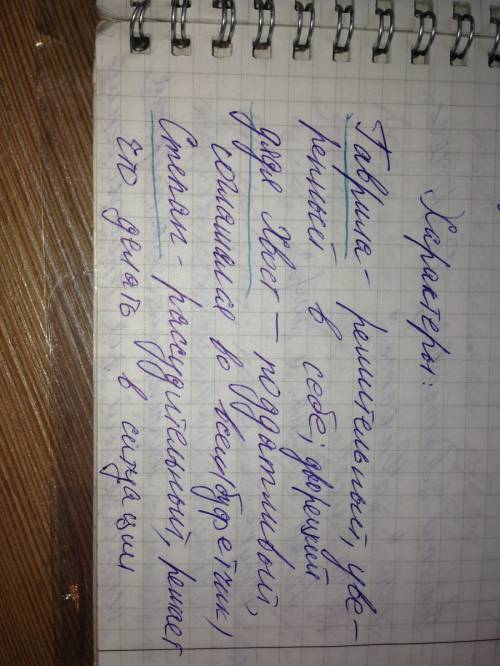 Характеры:
Гаврила - решительный, уве-
ренный в себе; дворецкий
дядя Хвост - поддатливый,
соглашался во всём(буфетчик)
Степан - рассудительный, решает
что делать в ситуации